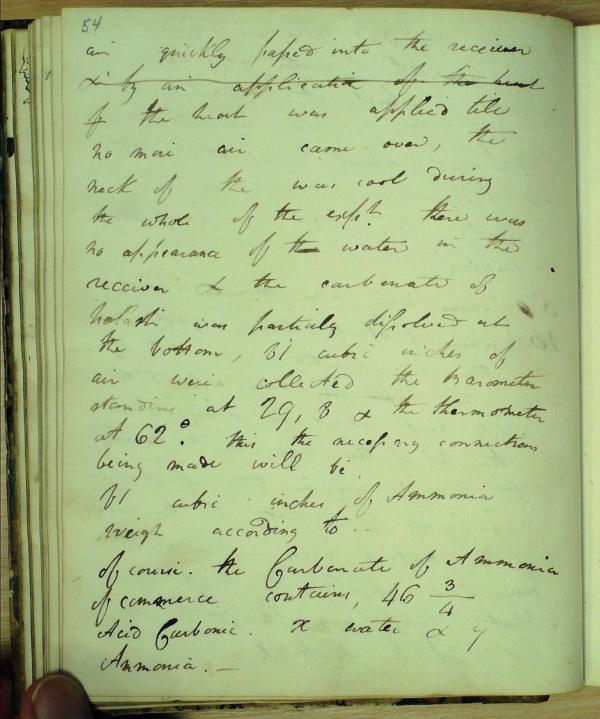 54
air quickly passed into the receiver
& by an application of the heat
& the heat was applied till
no more air came over, the
neck of the was cool during
the whole of the expt. there was
no appearance of the water in the
receiver & the carbonate of
potash was partially dissolved at
the bottom, 81 cubic inches of
air were collected the Barometer
standing at 29, 8 & the thermometer
at 62°. this the necessary connections
being made will be
81 cubic inches of Ammonia
weigh according to --
of course. the Carbonate of Ammonia
of commerce contains, 46 3/4
Acid Carbonic. X water & y
Ammonia. —